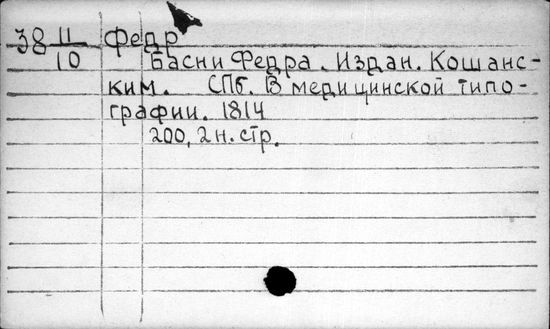 38 11/10 Федр
Басни Федра. Издан. Кошанс-
ким. СПб. В медицинской типо-
графии. 1814
200, 2 н. стр.